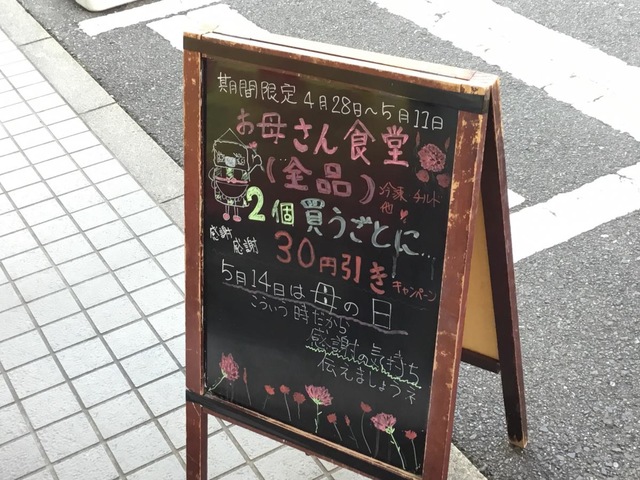 期間限定 4月28日～5月11日
お母さん食堂
(全品) 冷凍 チルド
他
2個買うごとに…
感謝
感謝
30円引き キャンペーン
5月14日は母の日
こういう時だから
感謝の気持ち
伝えましょうネ